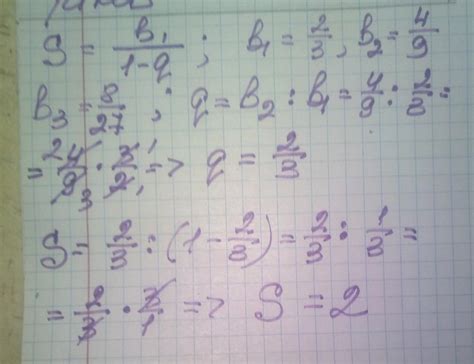 S = b₁/(1-q); b₁ = 2/3, b₂ = 4/9
b₃ = 8/27; q = b₂ : b₁ = 4/9 : 2/3 =
= 4/9 · 3/2 => q = 2/3
S = 2/3 : (1 - 2/3) = 2/3 : 1/3 =
= 2/3 · 3/1 => S = 2